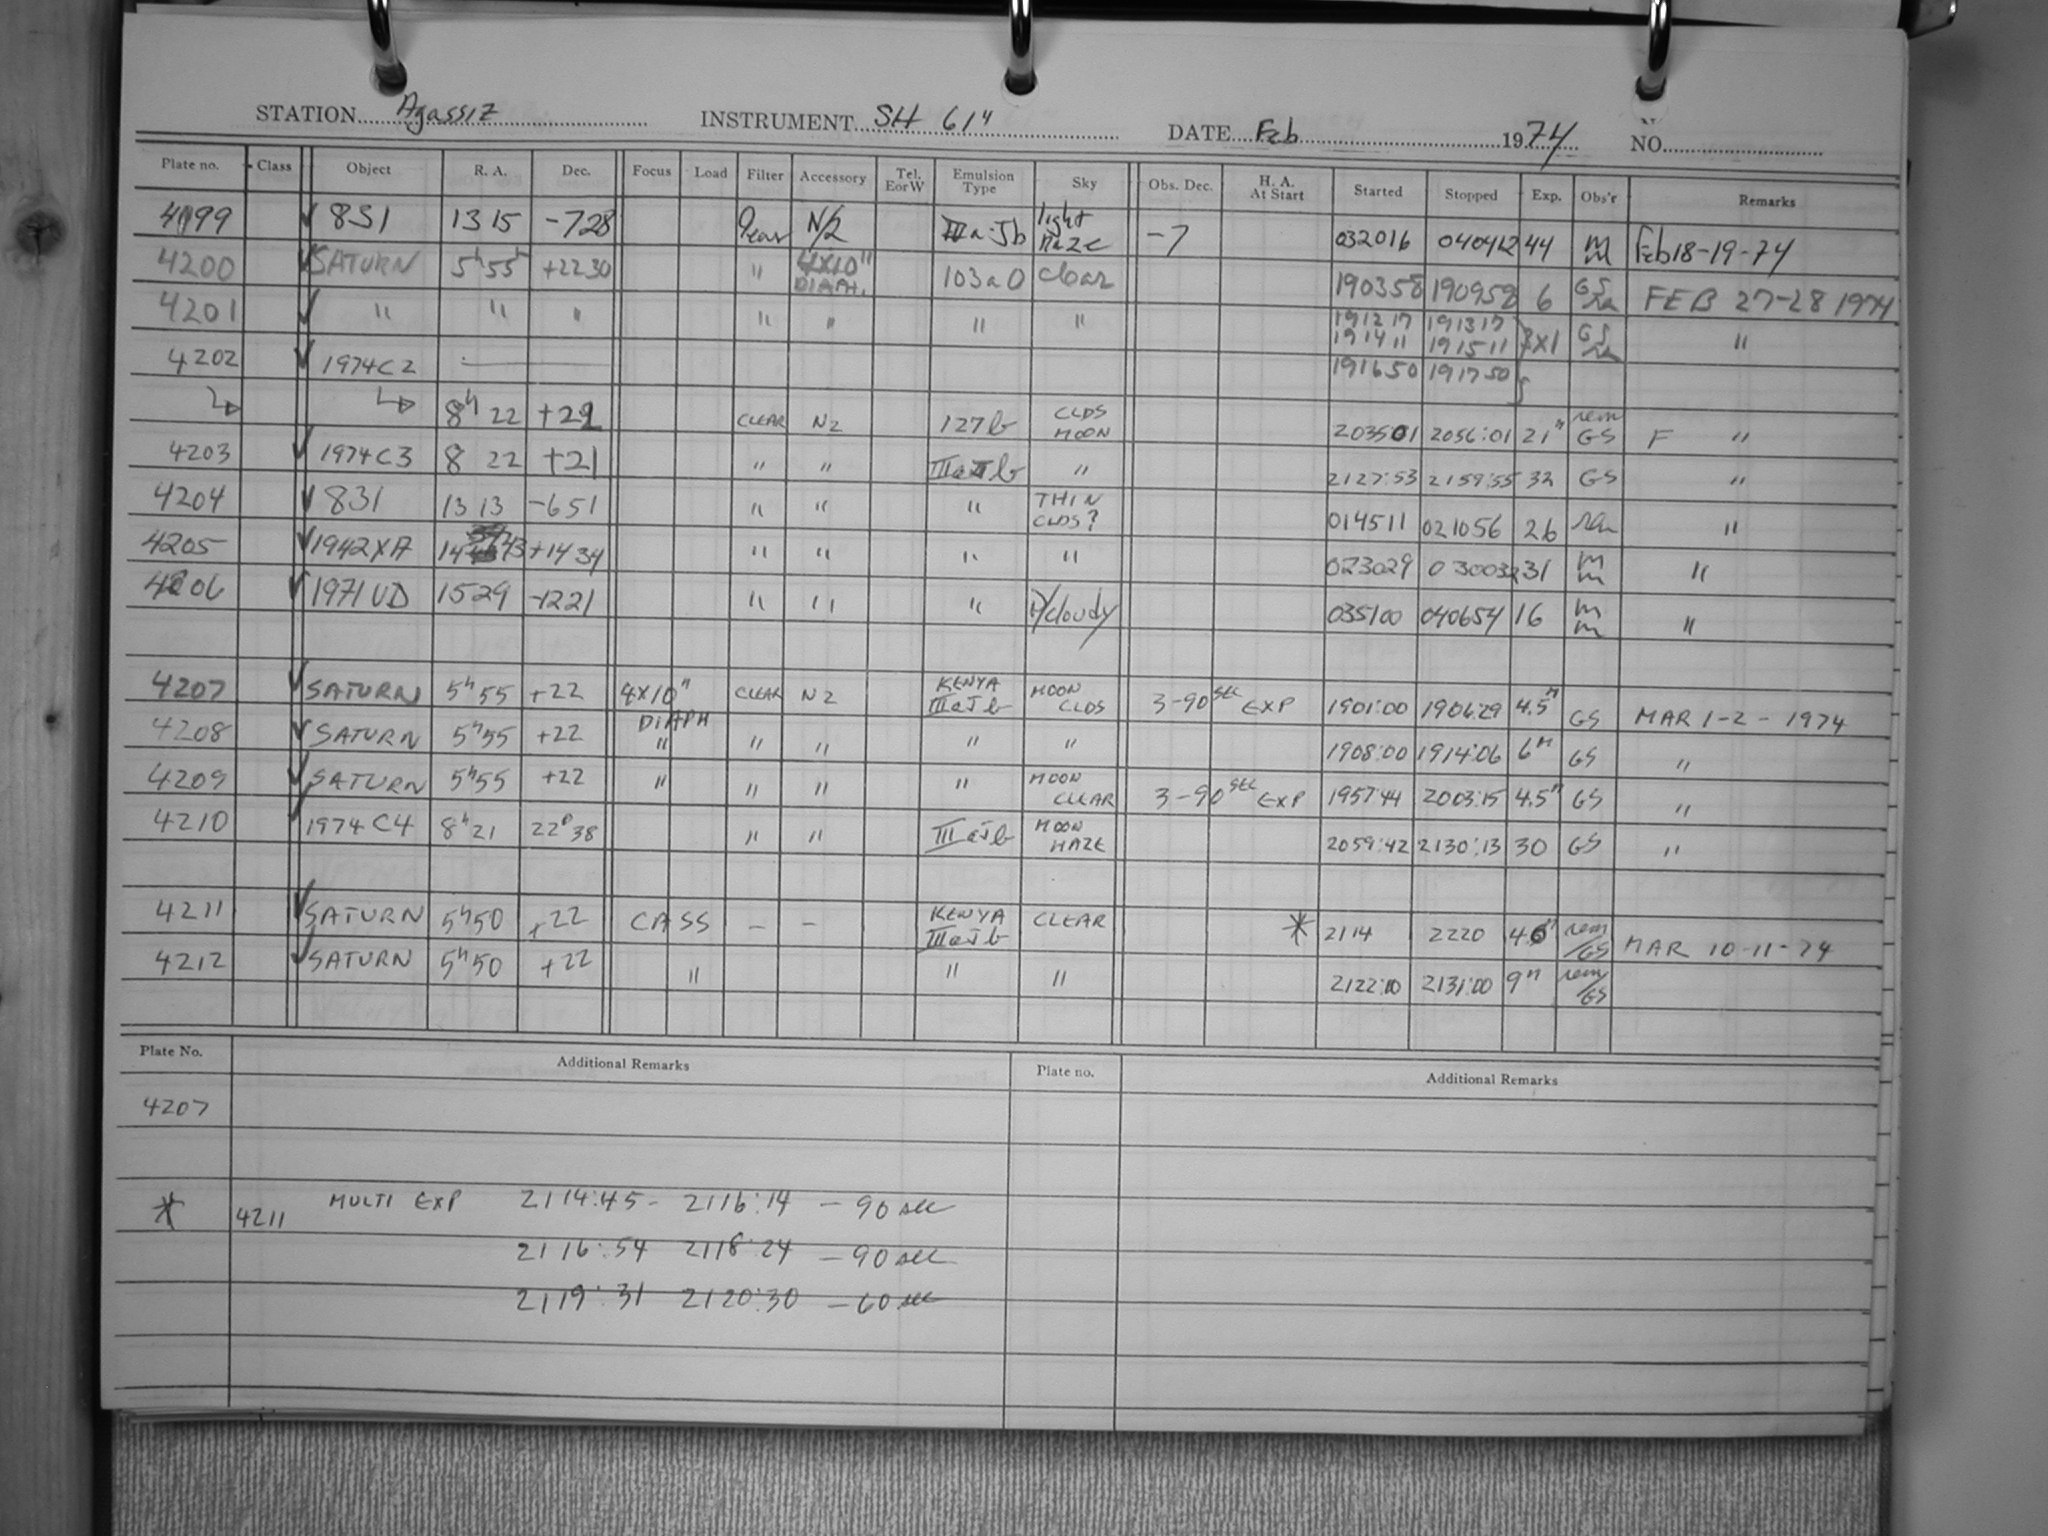 STATION Agassiz INSTRUMENT SH 61" DATE Feb 1974 NO.
Plate no. Class Object R. A. Dec. Focus Load Filter Accessory Tel. E or W Emulsion Type Sky Obs. Dec. H. A. At Start Started Stopped Exp. Obs'r Remarks
4199 ✓ 831 13 15 -728 Clear N/2 IIIa-Jb light Haze -7 032016 040412 44 Feb 18-19-74
4200 ✓ SATURN 5h 55h +22 30 " 4X10" DIAPH. 103a0 clear 190358 190958 6 GS FEB 27-28 1974
4201 ✓ " " " " " " " 191217 191317 3X1 GS "
191411 191511
191650 191750
4202 ✓ 1974C2
8h 22 +22 CLEAR N2 127b CLDS MOON 203501 2056:01 21m rem GS F "
4203 ✓ 1974C3 8 22 +21 " " IIIaJb " 2127:53 2159:55 32 GS "
4204 ✓ 831 13 13 -651 " " " THIN CLDS? 014511 021056 26 "
4205 ✓ 1942XA 14 43 +14 34 " " " " 023029 030032 31 "
4206 ✓ 1971UD 1529 -1221 " " " cloudy 035100 040654 16 "
4207 ✓ SATURN 5h55 +22 4X10" DIAPH CLEAR N2 KENYA IIIaJb MOON CLDS 3-90 SEC EXP 1901:00 1906:29 4.5m GS MAR 1-2-1974
4208 ✓ SATURN 5h55 +22 " " " " " 1908:00 1914:06 6m GS "
4209 ✓ SATURN 5h55 +22 " " " " MOON CLEAR 3-90 SEC EXP 1957:44 2003:15 4.5m GS "
4210 ✓ 1974 C4 8h21 22° 38 " " IIIaJb MOON HAZE 2059:42 2130:13 30 GS "
4211 ✓ SATURN 5h50 +22 CASS - - KENYA IIIaJb CLEAR * 2114 2220 rem/GS MAR 10-11-74
4212 ✓ SATURN 5h50 +22 " " " 2122:00 2131:00 9m rem/GS
Plate No. Additional Remarks Plate no. Additional Remarks
4207
* 4211 MULTI EXP 2114:45 - 2116:14 - 90 sec
2116:54 2118:24 - 90 sec
2119:31 2120:30 - 60 sec